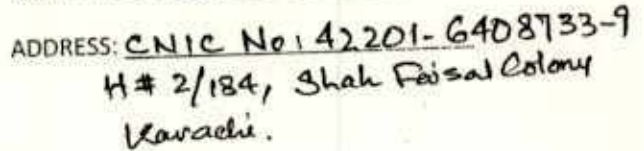 ADDRESS: CNIC No: 42201-6408733-9
H# 2/184, Shah Faisal Colony
Karachi.